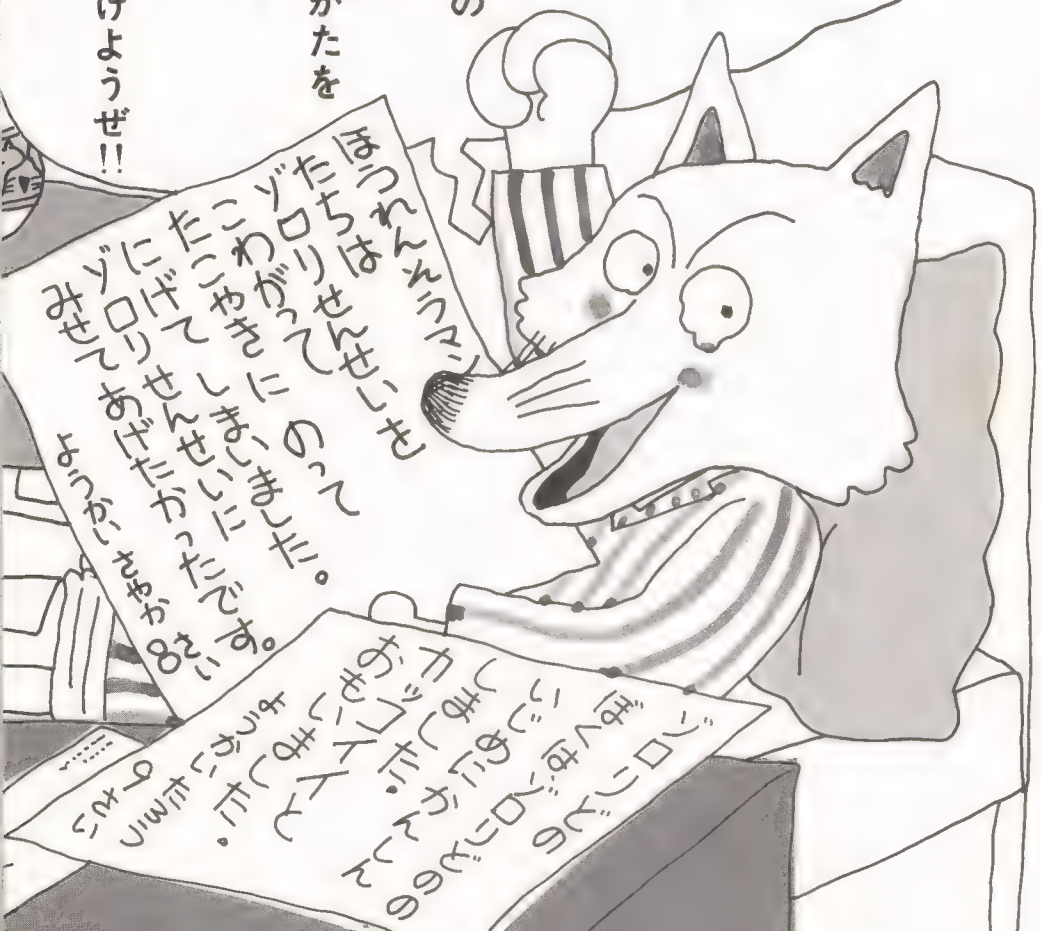 の
がたを
けようぜ!!
ほうれんそうマン
たちは
ゾロリせんせいを
こわがって
たこやきに のって
にげて しまいました。
ゾロリせんせいに
みせてあげたかったです。
ようかい さやか 8さい
ゾロリどの
ぼくはゾロリどのの
いじめにかんしん
しました。
カッコイイと
おもいました。
ようかい
9さい